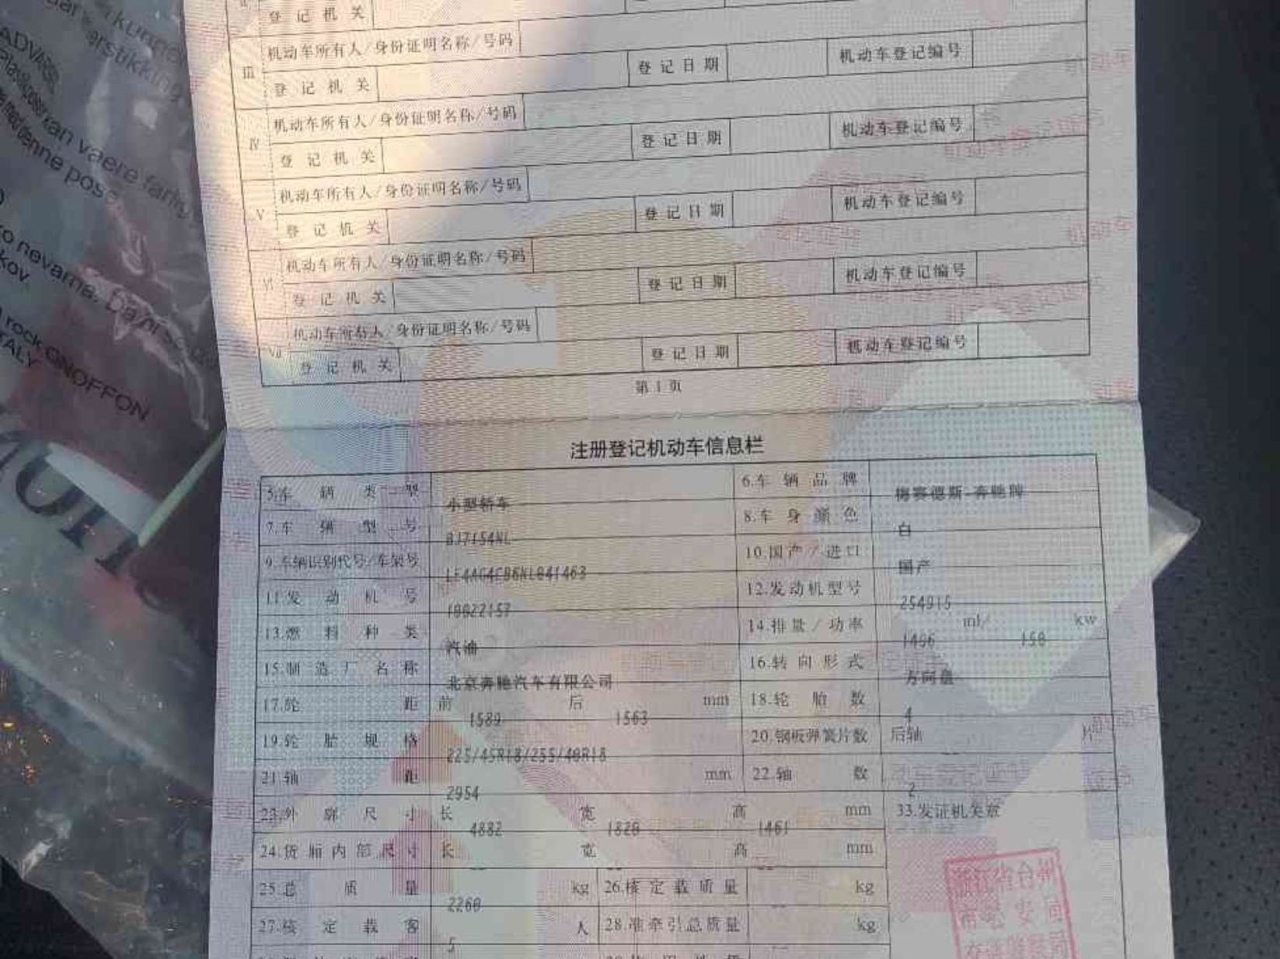 登记机关
Ⅲ 机动车所有人/身份证明名称/号码
登记机关 登记日期 机动车登记编号
Ⅳ 机动车所有人/身份证明名称/号码
登记机关 登记日期 机动车登记编号
Ⅴ 机动车所有人/身份证明名称/号码
登记机关 登记日期 机动车登记编号
Ⅵ 机动车所有人/身份证明名称/号码
登记机关 登记日期 机动车登记编号
Ⅶ 机动车所有人/身份证明名称/号码
登记机关 登记日期 机动车登记编号
第1页
注册登记机动车信息栏
5.车辆类型 小型轿车 6.车辆品牌 梅赛德斯-奔驰牌
7.车辆型号 BJ7154NL 8.车身颜色 白
9.车辆识别代号/车架号 10.国产/进口 国产
11.发动机号 12.发动机型号 254915
13.燃料种类 汽油 14.排量/功率 1496 ml/ 150 kw
15.制造厂名称 北京奔驰汽车有限公司 16.转向形式 方向盘
17.轮距 前 1589 后 1563 mm 18.轮胎数 4
19.轮胎规格 225/45R18/255/40R18 20.钢板弹簧片数 后轴 片
21.轴距 2954 mm 22.轴数 2
23.外廓尺寸 长 4882 宽 1820 高 1461 mm 33.发证机关章
24.货厢内部尺寸 长 宽 高 mm
25.总质量 2260 kg 26.核定载质量 kg
27.核定载客 5 人 28.准牵引总质量 kg
浙江省台州
市公安局
kan vaere farlig
denne pose
to nevarne.
ITALY
rock ONOFFON